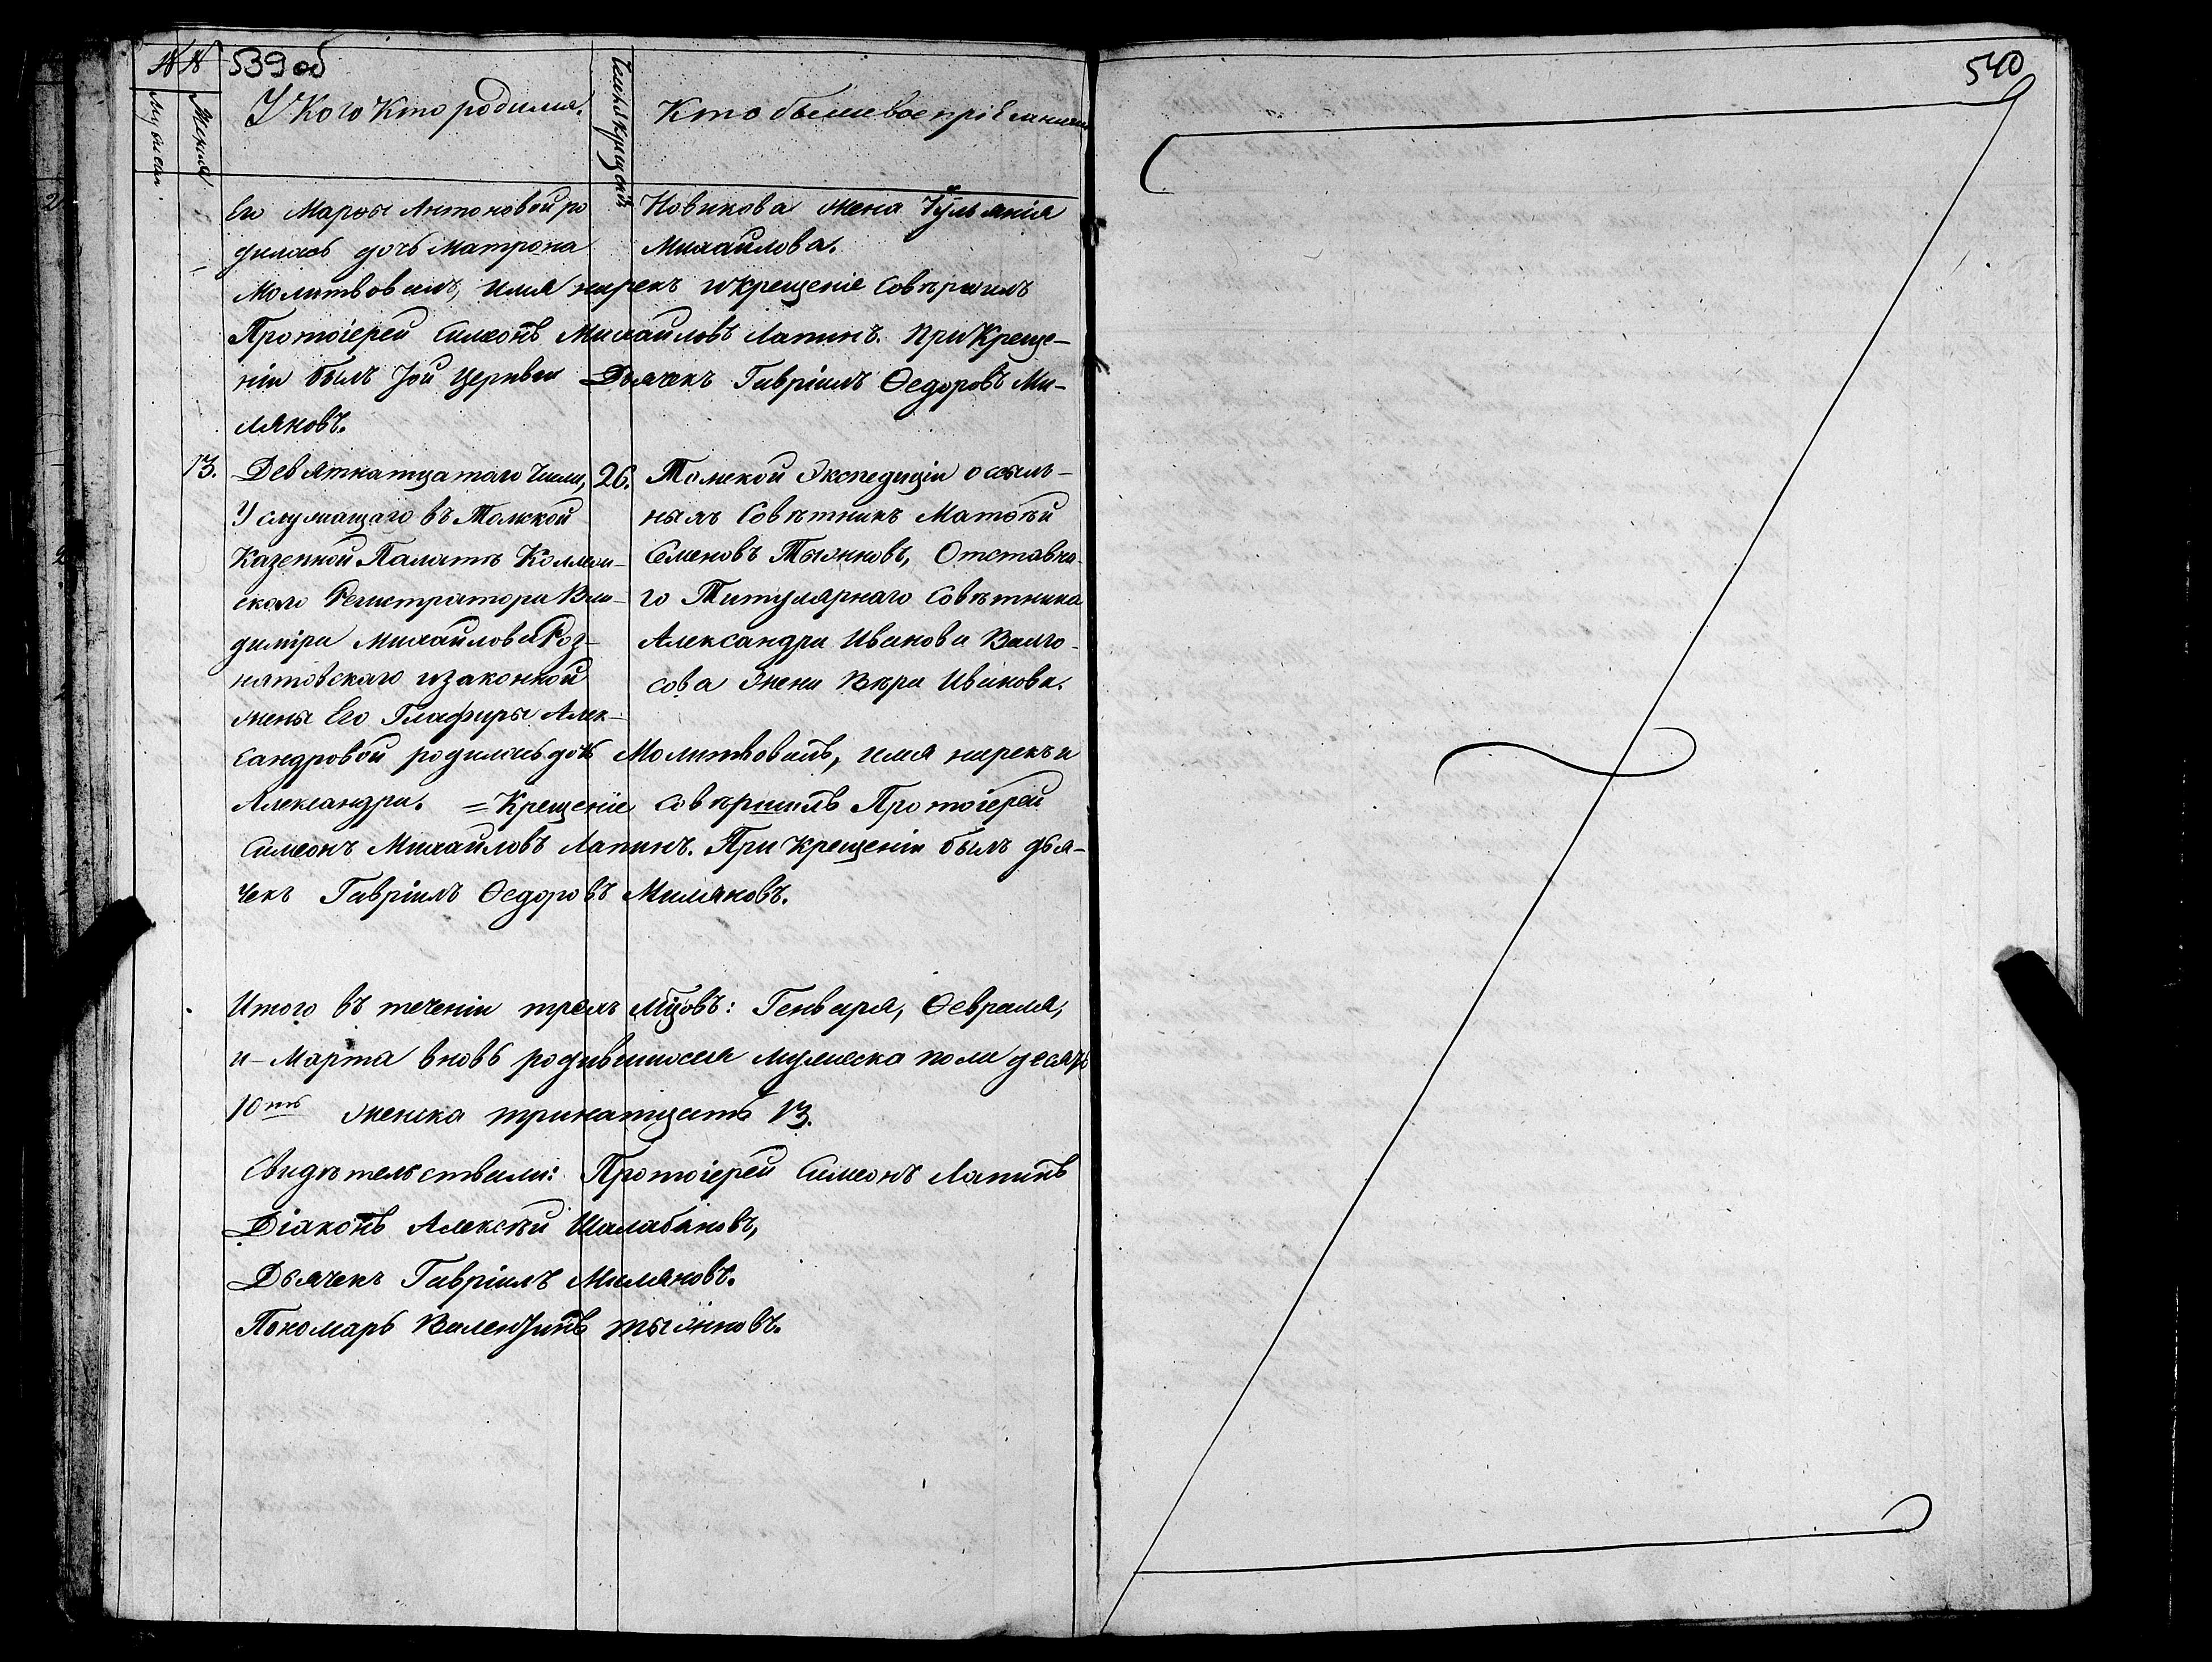 №№ 539 об
Мужеска.
Женска
У Кого Кто родился.
Числа крещенiя
Кто были воспрiемники
Его Марѳы Антоновой ро
дилась дочь Матрона
Новикова жена Iульянiя
Михайлова.
Молитвовалъ, имя нарекъ и крещенiе совершилъ
Протоiерей Симеонъ Михайловъ Лапинъ. При Креще-
нiи былъ той Церкви Дьячекъ Гаврiилъ Ѳедоровъ Ми-
ляновъ.
13. Девятнатцатаго Числа,
У служащаго въ Томской
Казенной Палатѣ Коллеж-
скаго Регистратора Вла-
димiра Михайлова Роз-
нятовскаго и законной
жены Его Глафиры Алек-
сандровой родилась дочь
Александра.
26. Томской Экспедицiи о ссыль-
ныхъ Совѣтникъ Матѳей
Семеновъ Тыжновъ, Отставна-
го Титулярнаго Совѣтника
Александра Иванова Валго-
сова Жена Вѣра Иванова.
Молитвовалъ, имя нарекъ и
= Крещенiе совершилъ Протоiерей
Симеонъ Михайловъ Лапинъ. При Крещенiи былъ дья-
чекъ Гаврiилъ Ѳедоровъ Миляновъ.
Итого въ теченiи трехъ мцовъ: Генваря, Февраля,
и Марта вновь родившихся мужеска пола десять
10ть женска тринатцать 13.
Свидѣтельствали: Протоiерей Симеонъ Лапинъ
Дiаконъ Алексѣй Шалабановъ,
Дьячекъ Гаврiилъ Миляновъ.
Пономарь Валентинъ Тыжновъ.
540